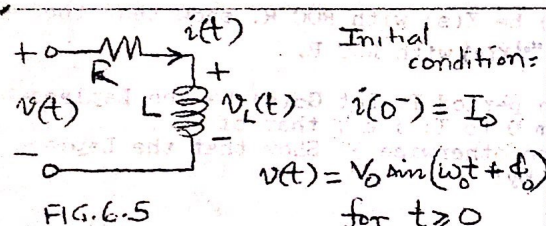 i(t)
Initial
condition:
+
R
+
v(t)
L
v_L(t)
i(0⁻) = I₀
−
−
v(t) = V₀ sin(ω₀t + ϕ₀)
FIG. 6.5
for t ≥ 0